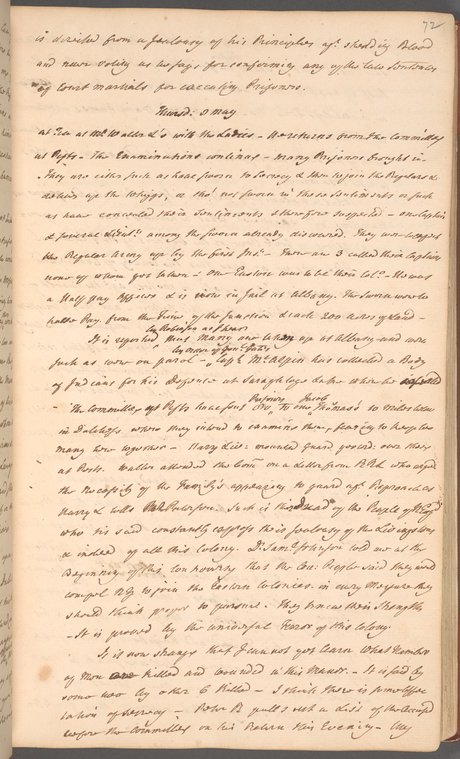 72
is divided from a Jealousy of his Principles agt. shedding Blood
and never voting as he says, for confirming any of the late Sentences
of Court martials for executing Prisoners.
Thursd: 8 may
at Tea at Mr. Walter L's with the Ladies – He returns from the Committee
at Posts – The Examinations continue – many Prisoners brought in –
They are either such as have sworn to Secrecy & then to join the Regulars &
deliver up the Whigs, or tho' not sworn in those Sentiments or such
as have concealed their Sentiments & therefore suspected – one Captn
& several among the sworn already discovered. They were to
the Regular Army up by the first Inst. – Two or 3 called their Captains
none of whom yet taken – One was to be their Col. – He was
a Half pay Officer & is now in Jail at Albany. The Sworn were to
have Pay from the Time of the Junction & each 200 acres of Land –
It is reported that many are taken up at Albany and were
such as were on parole – Capt. McAlpin has collected a Body
of Indians for his Defence at Saraghtoga Lake where he
The Committee at Posts have sent Prisoners, to one Jacob Thomas's to
in Dutchess, where they intend to examine them, fearing to keep too
many here together – Harry Liv: mounted Guard yesterd: over them
at Posts. Walter attended the Comee on a Letter from RRL who urged
the Necessity of the Family's appearing to guard agt. Reproach as
Harry L & Paterson. Such is the Dread of the People of
who tis said constantly express the Jealousy of the Livingstons
& indeed of all this Colony. Dr. Saml. Johnson told me at the
Beginning of this Controversy that the Con: People said they would
compel NY to join the Eastern Colonies in every Measure they
should think proper to pursue. They knew their Strength
– It is proved by the universal Terror of this Colony.
It is now strange that I can not yet learn what Number
of Men are killed and wounded in this Manor. – It is said by
some two by others 6 killed – I think there is some
of Secrecy – Robt R pulls out a List of the
before the Committee on his Return this Evening – My